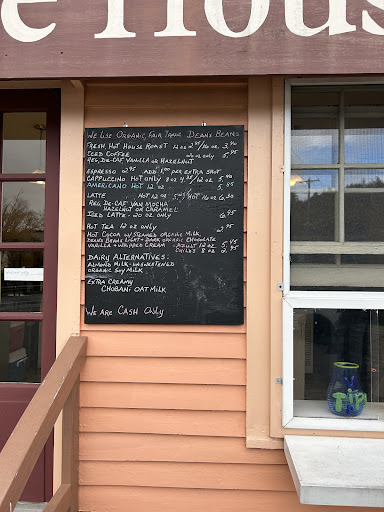 e Hous
We Use Organic, Fair Trade Deans Beans
Fresh Hot House Roast 12 oz 2.95/16 oz. 3.40
Iced Coffee 20 oz only 5.95
Reg, De-Caf, Vanilla or Hazelnut
Espresso 2.95 Add 1.00 per extra shot
Cappuccino Hot only 8 oz 4.25/12 oz 5.40
Americano Hot 12 oz 5.25
Latte Hot 12 oz 5.45/Hot 16 oz 6.30
Reg. De-Caf Van Mocha
Hazelnut or Caramel
Iced Latte - 20 oz only 6.95
Hot Tea 12 oz only 2.95
Hot Cocoa w/Steamed Organic Milk
Deans Beans Light + Dark Organic Chocolate
Vanilla + Whipped Cream Adult 12 oz 5.45
Childs 8 oz
Dairy Alternatives:
Almond Milk - Unsweetened
Organic Soy Milk
Extra Creamy
Chobani Oat Milk
We are Cash Only
Tip